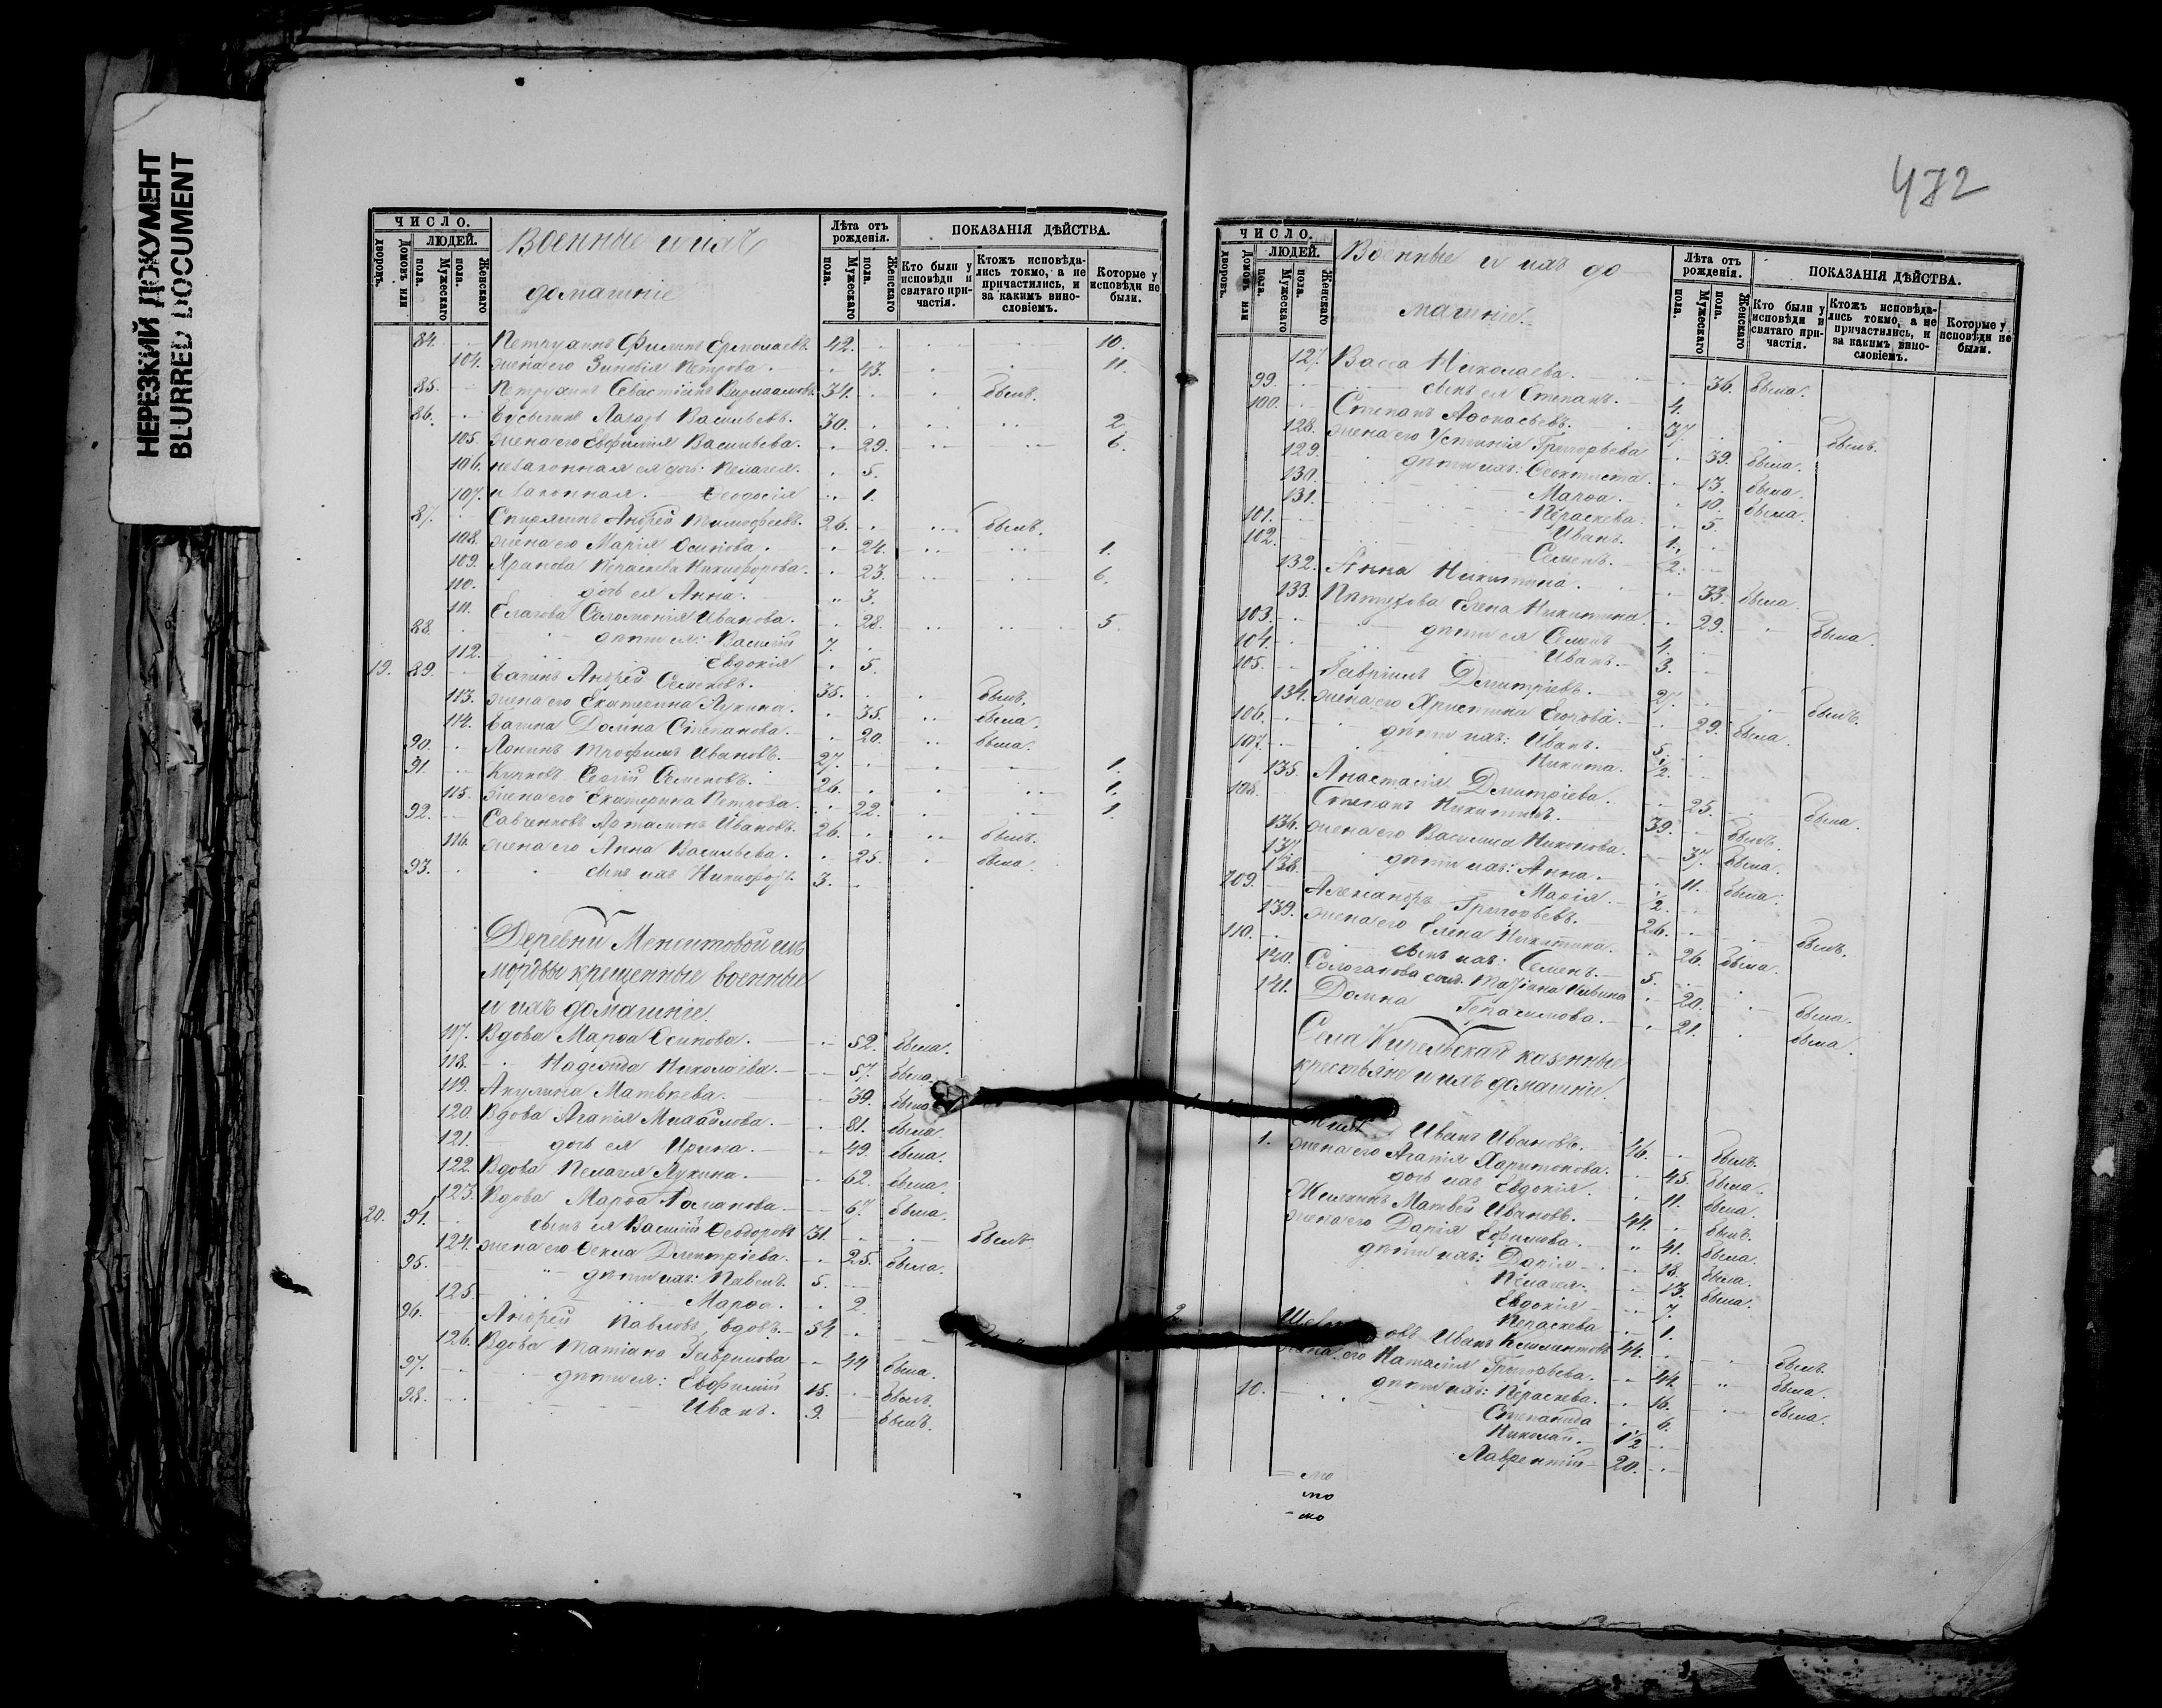 НЕРЕЗКИЙ ДОКУМЕНТ
BLURRED DOCUMENT
ЧИСЛО.
ЛЮДЕЙ.
Домовъ или дворовъ.
Мужескаго пола.
Женскаго пола.
Военные и ихъ
домашніе
Лѣта отъ рожденія.
Мужескаго пола.
Женскаго пола.
ПОКАЗАНІЯ ДѢЙСТВА.
Кто были у исповѣди и святаго причастія.
Ктожъ исповѣдались токмо, а не причастились, и за какимъ винословіемъ.
Которые у исповѣди не были.
84. Петрухинъ Филипъ Ермолаевъ. 42. 10.
104. жена его Зиновія Петрова. 43. 11.
85. Петрухинъ Севастіянъ 34. былъ.
86. Лазарь Васильевъ. 30. 2.
105. жена его Евфимія Васильева. 29. 6.
106. незаконная ея дочь: Пелагея. 5.
107. незаконная. Ѳеодосія 1.
87. Спирякинъ Андрей Тимофеевъ. 26. былъ.
108. жена его Марія Осипова. 24. 1.
109. Арапова Параскева Никифорова. 23. 6.
110. дочь ея Анна. 3.
111. Елагова Соломонія Иванова. 28. 5.
88. дѣти ея: Василій 7.
112. Евдокія 5.
19. 89. Багинъ Андрей Семеновъ. 35. былъ.
113. жена его Екатерина Лукина. 35. была.
114. Багина Домна Степанова. 20. была.
90. Лонинъ Трофимъ Ивановъ. 27. 1.
91. Сергій Семеновъ. 26. 1.
115. жена его Екатерина Петрова. 22. 1.
92. Савченковъ Артамонъ Ивановъ. 26. былъ.
116. жена его Анна Васильева. 25. была
93. сынъ ихъ Никифоръ. 3.
Деревни изъ
мордвы крещенные военные
и ихъ домашніе.
117. Вдова Марѳа Осипова. 52. была.
118. Надежда Николаева. 57. была.
119. Акулина Матвѣева. 39. была
120. Вдова Агапія Михайлова. 81. была.
121. дочь ея Ирина. 49. была.
122. Вдова Пелагея Лукина. 62. была.
123. Вдова Марѳа Романова 67. была.
20. 94. сынъ ея Василій Ѳеодоровъ 31. былъ.
124. жена его Ѳекла Дмитріева. 25. была.
95. дѣти ихъ: Павелъ. 5.
125. Марѳа. 2.
96. Андрей Павловъ, вдовъ. 54.
126. Вдова Татіана Гаврилова 44 была.
97. дѣти ея: Евфимій 15. былъ.
98. Иванъ. 9. былъ.
472
ЧИСЛО.
ЛЮДЕЙ.
Домовъ или дворовъ.
Мужескаго пола.
Женскаго пола.
Военные и ихъ до
машніе.
Лѣта отъ рожденія.
Мужескаго пола.
Женскаго пола.
ПОКАЗАНІЯ ДѢЙСТВА.
Кто были у исповѣди и святаго причастія.
Ктожъ исповѣдались токмо, а не причастились, и за какимъ винословіемъ.
Которые у исповѣди не были.
127. Васса Николаева. 36. была.
99. сынъ ея Степанъ. 4.
100. Степанъ Аѳонасьевъ. 37. былъ.
128. жена его Устинія Григорьева 39. была.
129. дѣти ихъ: Ѳеоктиста. 13. была.
130. Марѳа. 10. была.
131. Параскева. 5.
101. Иванъ. 1.
102. Семенъ. ½.
132. Анна Никитина. 33. была.
133. Пѣтухова Елена Никитина 29. была.
103. дѣти ея Семенъ 4.
104. Иванъ. 3.
105. Гавріилъ Дмитріевъ. 27. былъ.
134. жена его Христина Егорова. 29. была.
106. дѣти ихъ: Иванъ. 5.
107. Никита. ½.
135. Анастасія Дмитріева. 25. была.
108. Степанъ Никитинъ. 39. былъ.
136. жена его Василиса Никонова. 37. была.
137. дѣти ихъ: Анна. 11. была.
138. Марія. ½.
109. Александръ Григорьевъ. 26. былъ.
139. жена его Елена Никитина. 26. была.
110. сынъ ихъ: Семенъ. 5.
140. 20. была.
141. Домна Герасимова. 21. была.
Села казенные
крестьяне и ихъ домашніе.
1. Иванъ Ивановъ. 46. былъ.
жена его Агапія Харитонова. 45. была.
дочь ихъ Евдокія. 11. была.
Матвей Ивановъ. 44. былъ.
жена его Дарія Ефимова. 41. была.
дѣти ихъ: Дарія 18. была.
Пелагея. 13. была.
Евдокія 7.
Параскева 1.
2. овъ Иванъ Климентовъ 44. былъ.
жена его Наталія Григорьева. 44. была.
10. дѣти ихъ: Параскева. 16. была.
Степанида 6.
Николай. 1½
Лаврентій 20.